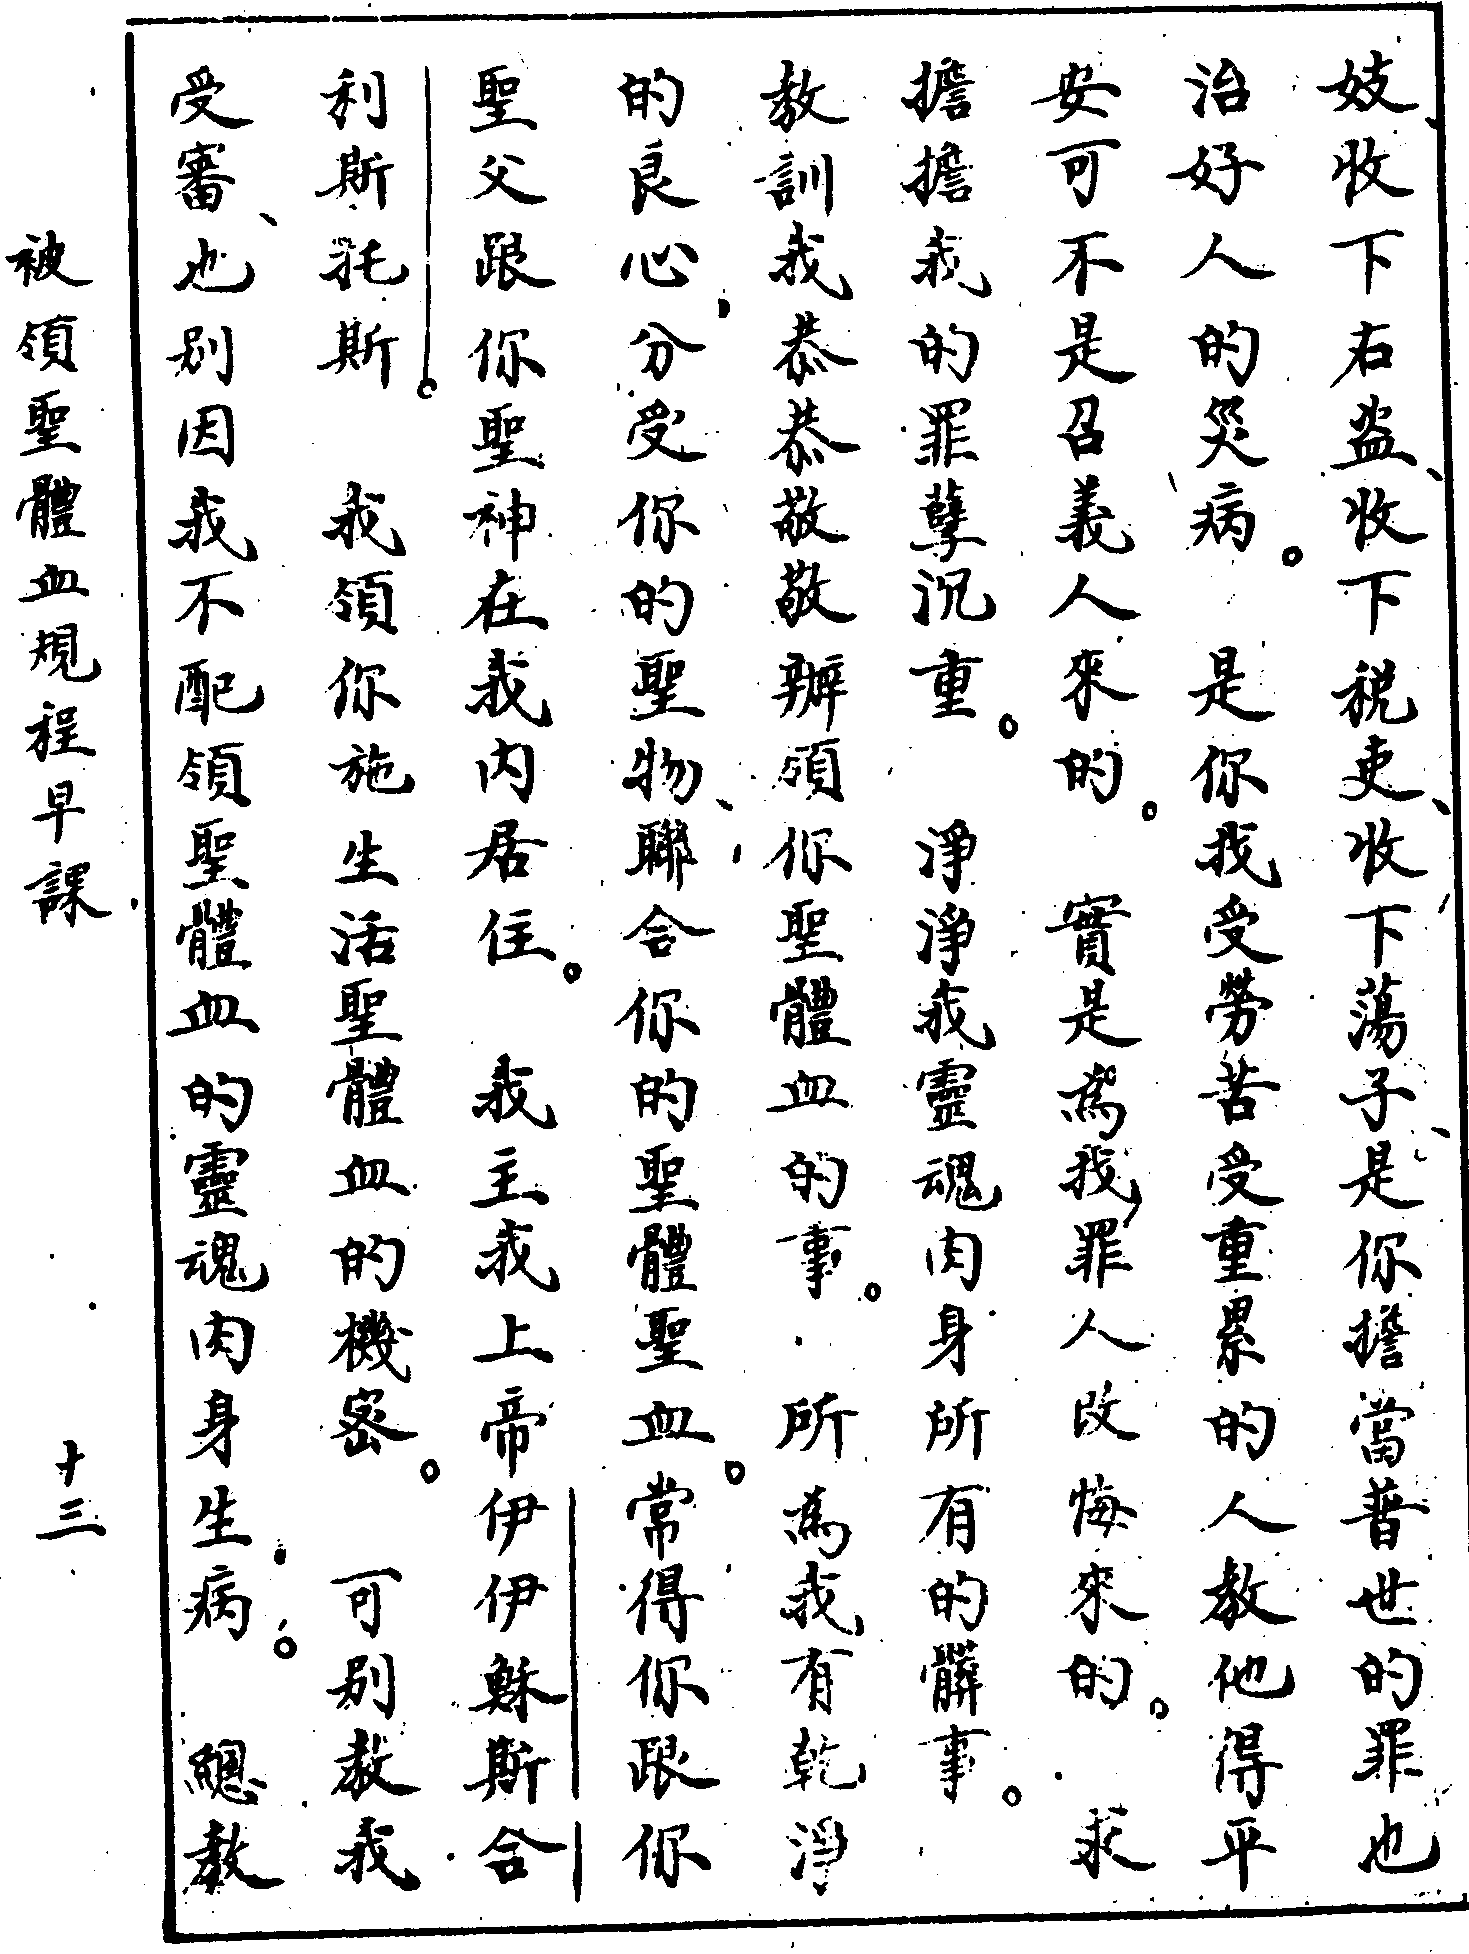 妓、收下右盗、收下税吏、收下蕩子、是你擔當普世的罪也
治好人的災病。是你我受勞苦受重累的人教他得平
安可不是召義人來的。實是為我罪人改悔來的。求
擔擔我的罪孽沉重。淨淨我靈魂肉身所有的髒事。
教訓我恭恭敬敬辦領你聖體血的事。所為我有乾淨
的良心、分受你的聖物、聯合你的聖體聖血。常得你跟你
聖父跟你聖神在我內居住。我主我上帝伊伊穌斯合
利斯托斯。我領你施生活聖體血的機密。可別教我
受審、也別因我不配領聖體血的靈魂肉身生病。總教
被領聖體血規程早課
十三